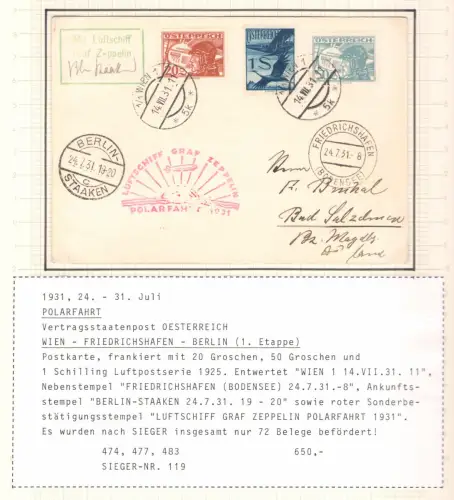 Mit Luftschiff
Graf Zeppelin
ÖSTERREICH
20
1S
ÖSTERREICH
WIEN 1
14.VII.31.11
* 5k *
WIEN 1
14.VII.31.11
* 5k *
BERLIN-
24.7.31.19-20
STAAKEN
LUFTSCHIFF GRAF ZEPPELIN
POLARFAHRT 1931
FRIEDRICHSHAFEN
24.7.31.-8
(BODENSEE)
Herrn
Bad Salzelmen
Bz. Magdb.
1931, 24. - 31. Juli
POLARFAHRT
Vertragsstaatenpost OESTERREICH
WIEN - FRIEDRICHSHAFEN - BERLIN (1. Etappe)
Postkarte, frankiert mit 20 Groschen, 50 Groschen und
1 Schilling Luftpostserie 1925. Entwertet "WIEN 1 14.VII.31. 11",
Nebenstempel "FRIEDRICHSHAFEN (BODENSEE) 24.7.31.-8", Ankunfts-
stempel "BERLIN-STAAKEN 24.7.31. 19 - 20" sowie roter Sonderbe-
stätigungsstempel "LUFTSCHIFF GRAF ZEPPELIN POLARFAHRT 1931".
Es wurden nach SIEGER insgesamt nur 72 Belege befördert!
474, 477, 483 650,-
SIEGER-NR. 119